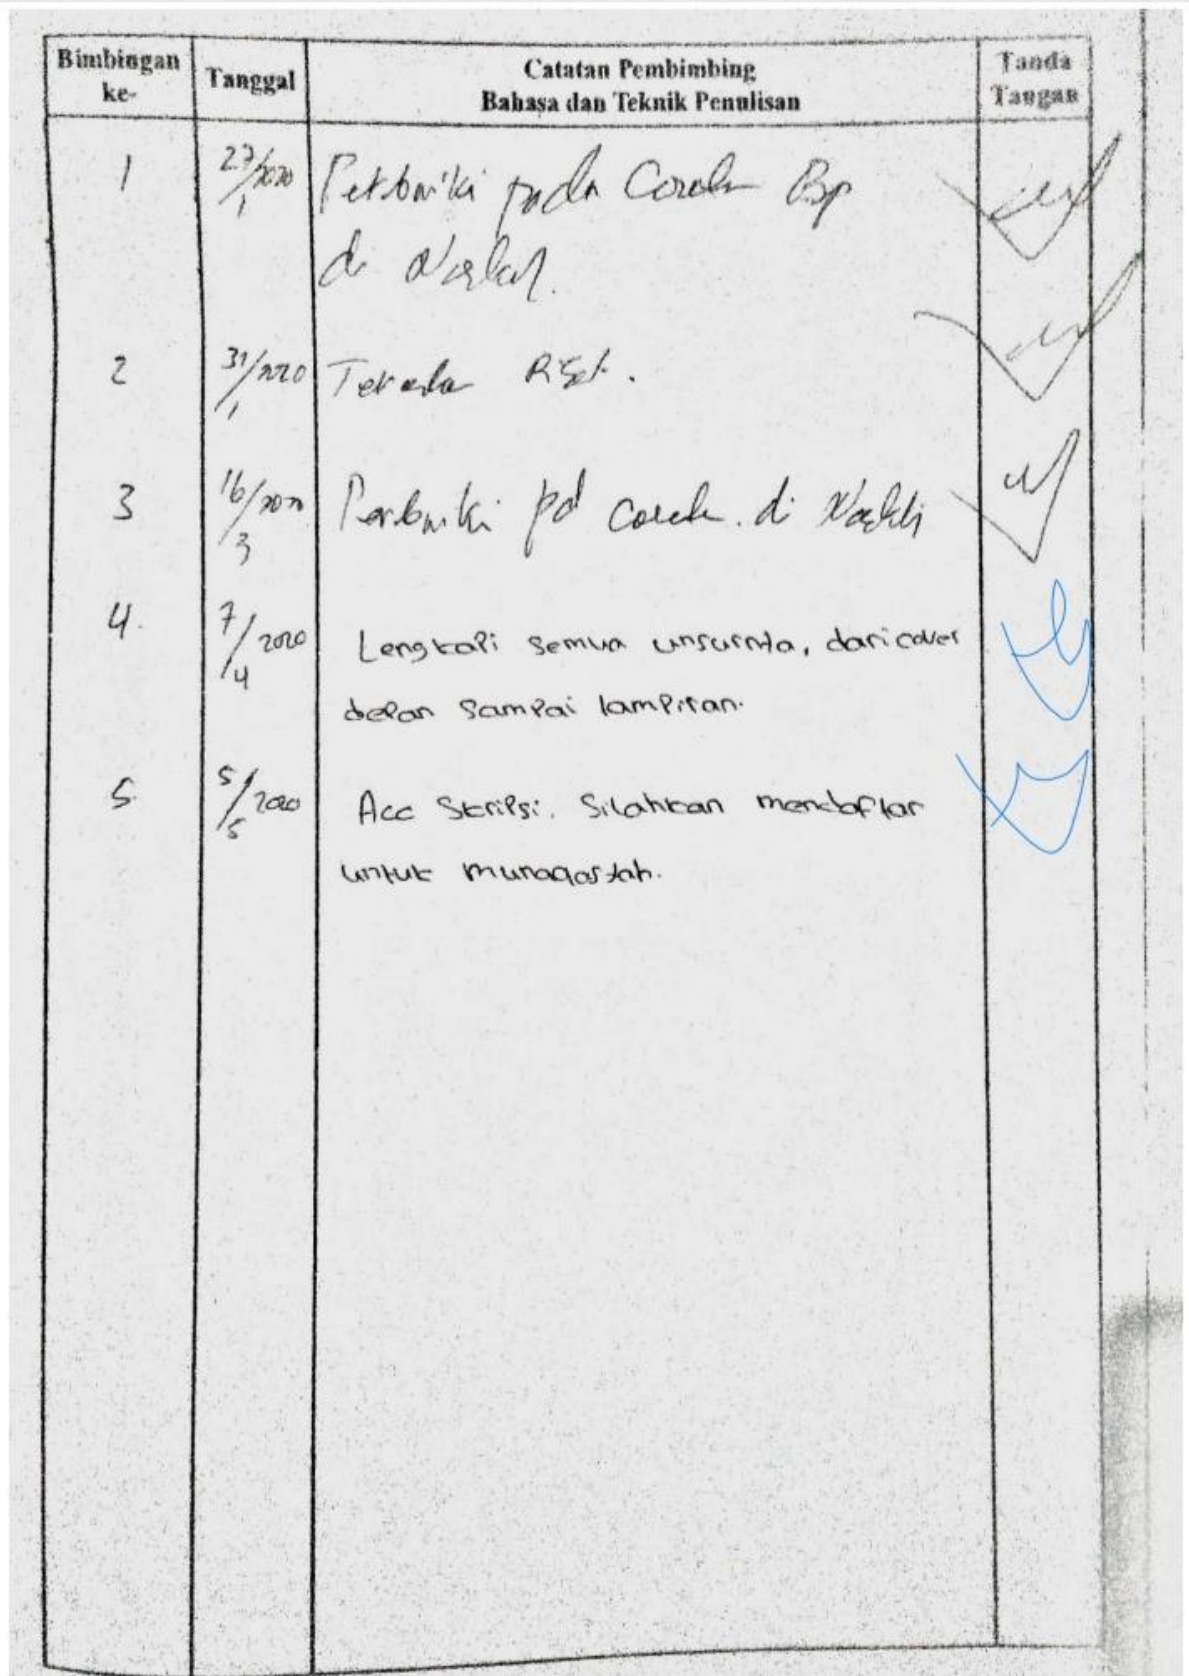 Bimbingan ke-
Tanggal
Catatan Pembimbing
Bahasa dan Teknik Penulisan
Tanda Tangan
1
27/1 2020
pada
di
2
31/1 2020
3
16/3 2020
pd
di
4.
7/4 2020
Lengkapi semua unsurnya, dari cover
depan sampai lampiran.
5
5/5 2020
Acc Skripsi. Silahkan mendaftar
untuk munaqasyah.